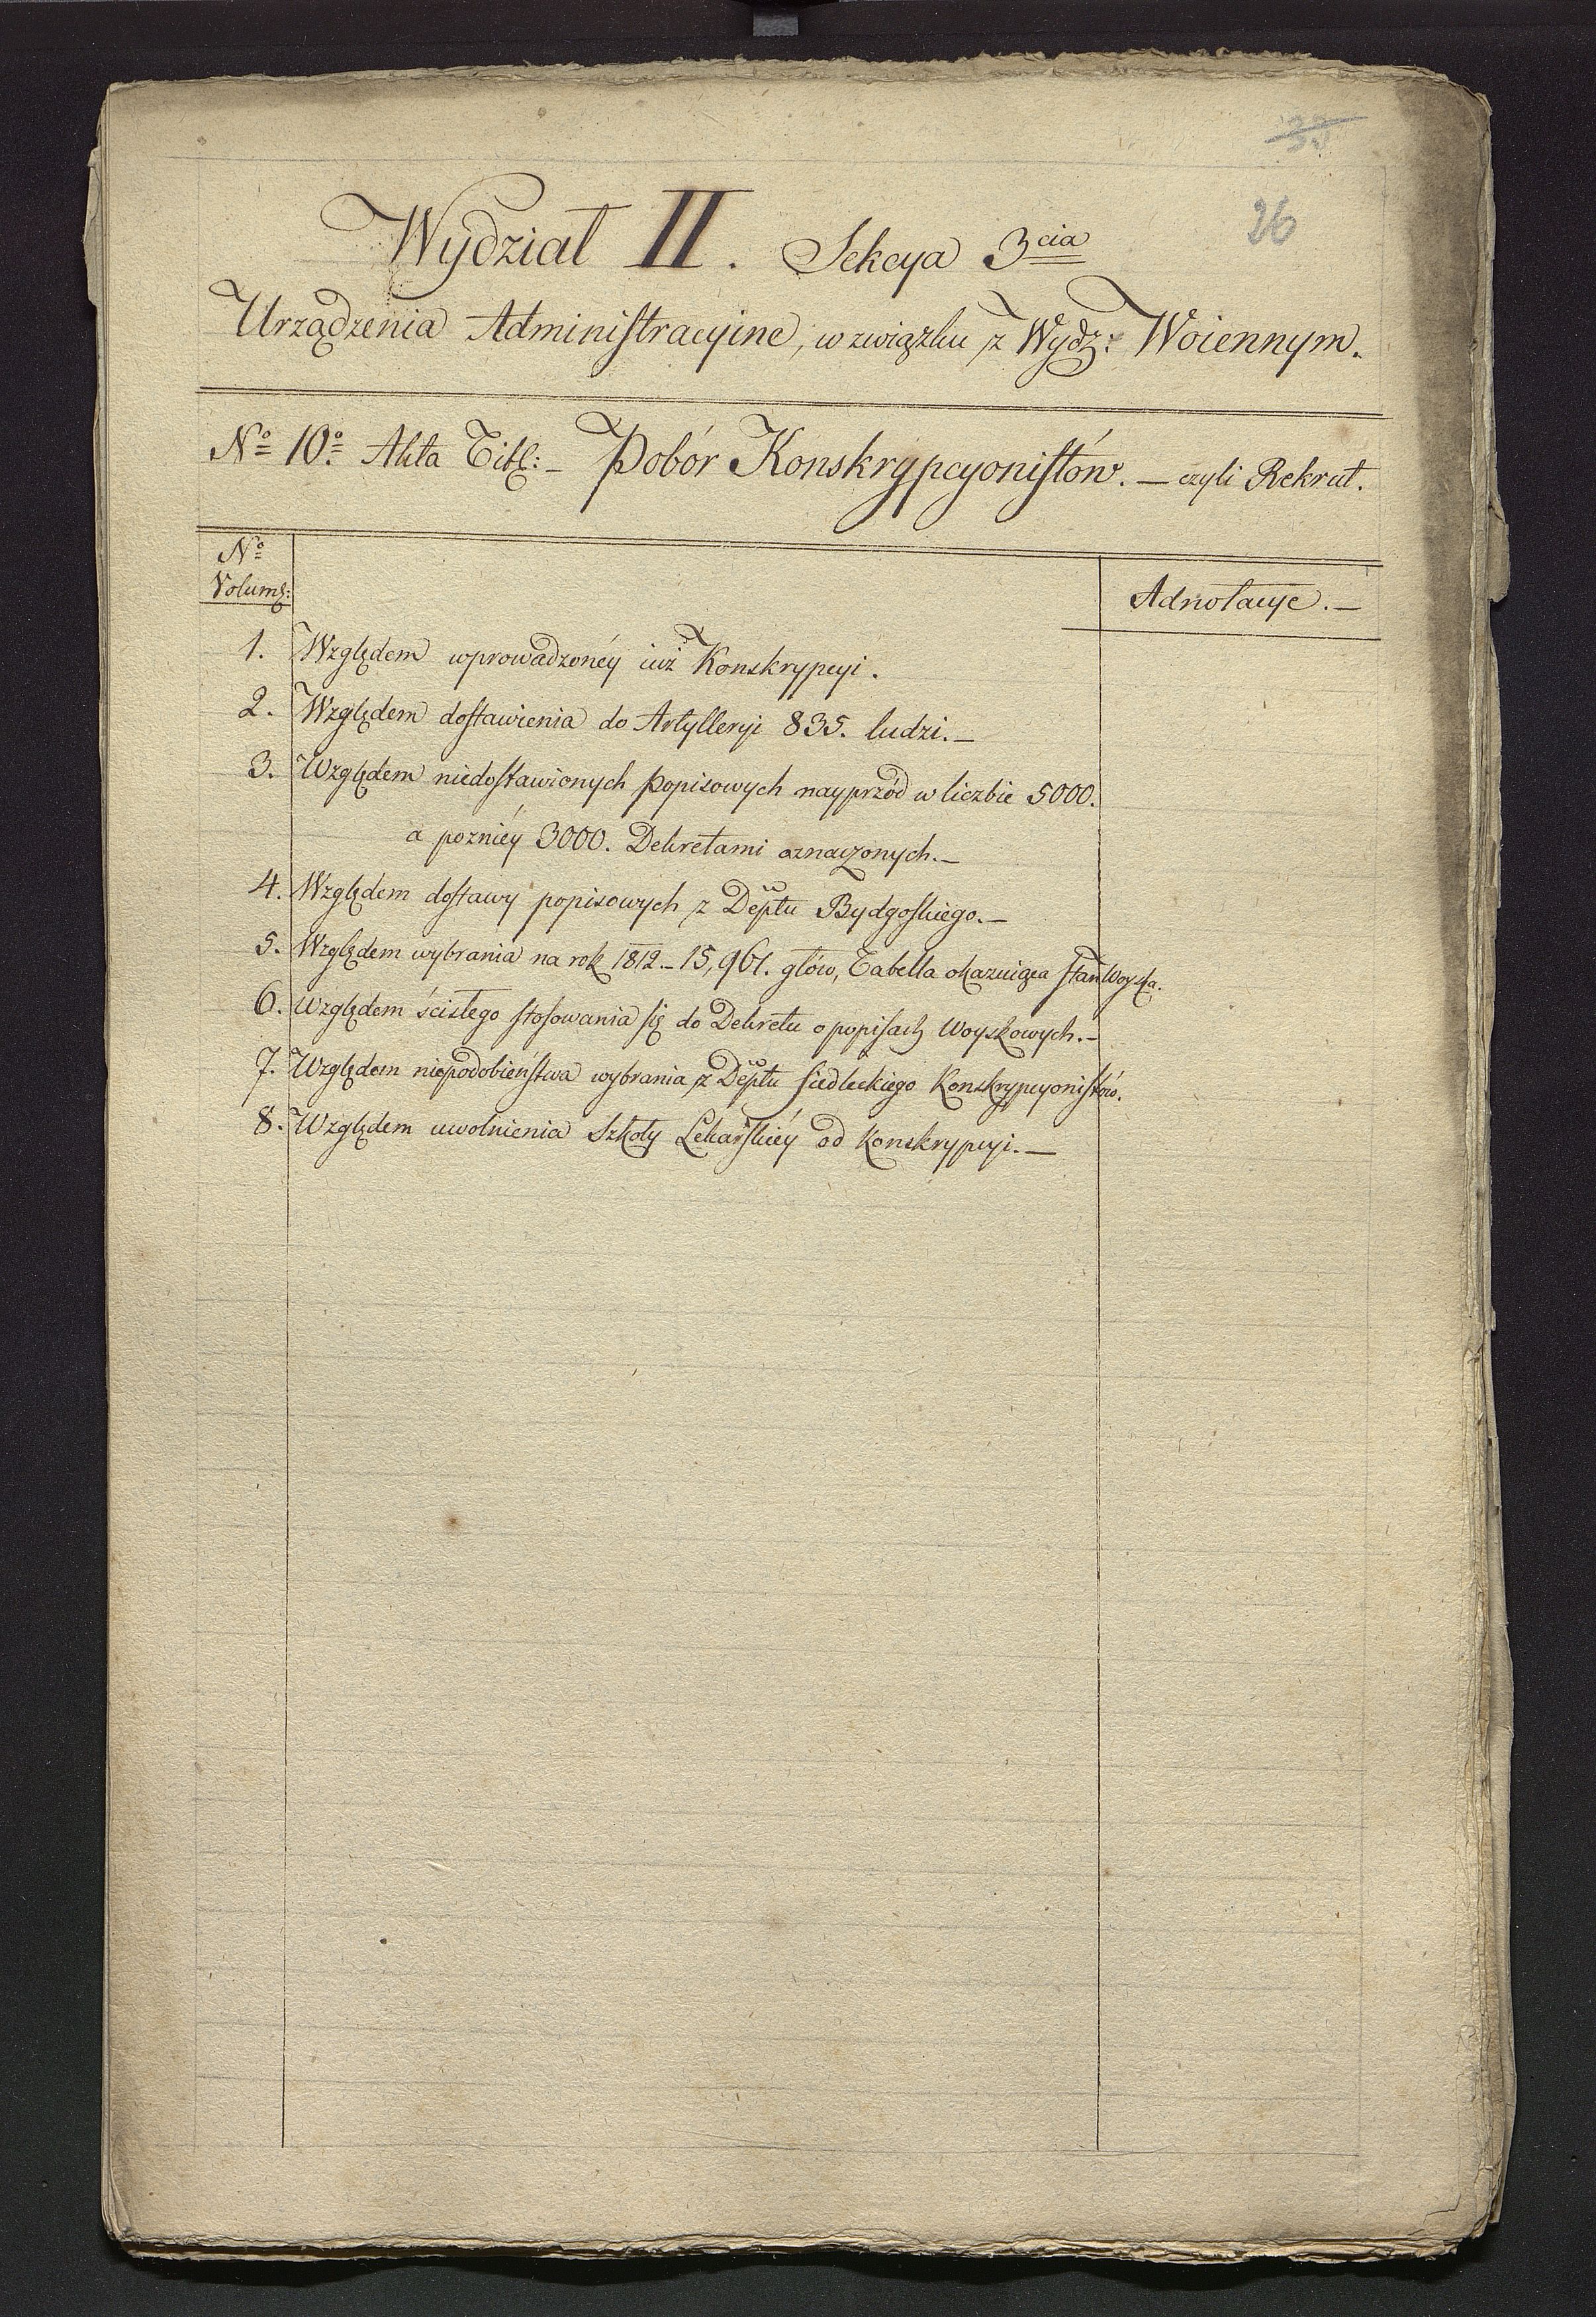 33
26
Wydział II. Sekcya 3cia
Urządzenia Administracyine, w związku z Wydz: Woiennym.
No 10o Akta Titl: – Pobór Konskrypcyonistów. — czyli Rekrut.
No
Volum:
Adnotacye. —
1. Względem wprowadzonéy iuż Konskrypcyi.
2. Względem dostawienia do Artylleryi 835. ludzi. —
3. Względem niedostawionych popisowych nayprzód w liczbie 5000.
a pozniéy 3000. Dekretami oznaczonych. —
4. Względem dostawy popisowych z Deptu Bydgoskiego. —
5. Względem wybrania na rok 1812. – 15,961. głów, Tabella okazuiąca stan Woyska.
6. Względem ścisłego stosowania się do Dekretu o popisach Woyskowych. —
7. Względem niepodobieństwa wybrania z Deptu Siedleckiego Konskrypcyonistów.
8. Względem uwolnienia Szkoły Lekarskiéy od Konskrypcyi. —